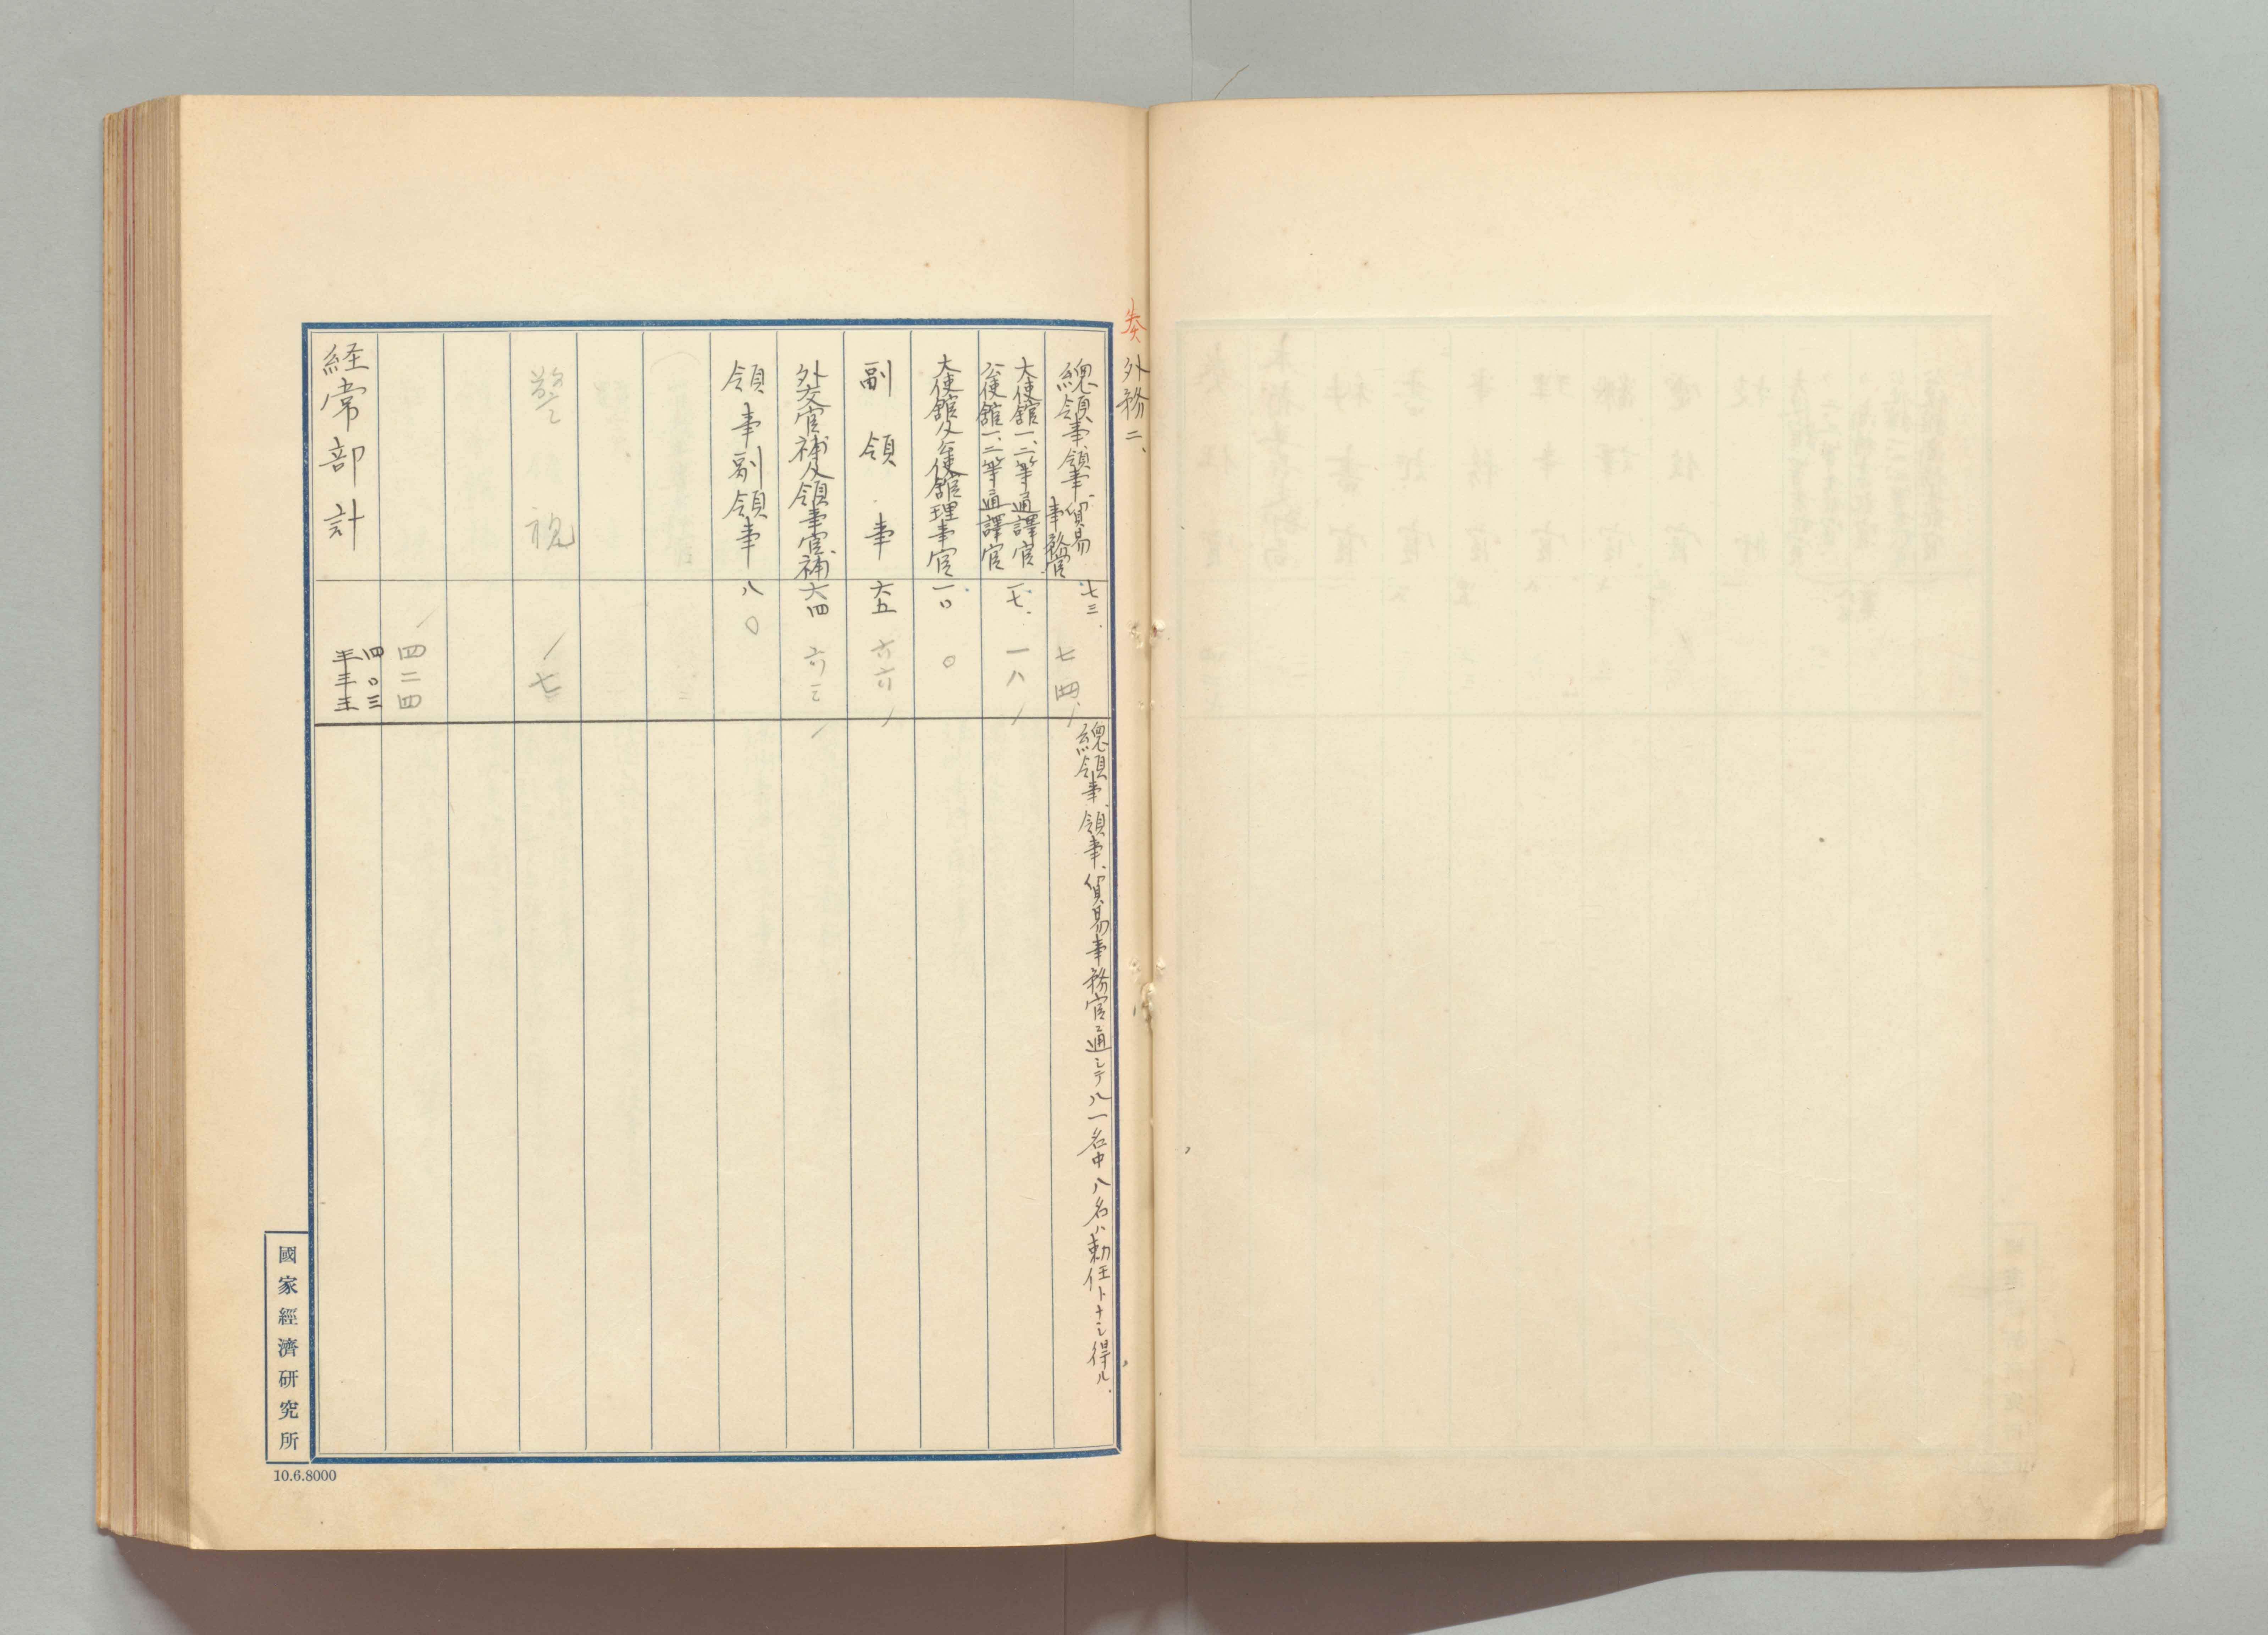 奏
外務二、
總領事、領事、貿易事務官
七三.
七四
總領事、領事、貿易事務官通シテ八一名中八名ハ勅任トナシ得ル.
大使館一、二等通譯官
公使館一、二等通譯官
一七.
一八
大使館及公使館理事官
一〇
〇
副領事
六五
六六
外交官補及領事官補
六四
六三
領事副領事
八〇
警視
七
四二四
経常部計
四〇三
國家經濟研究所
10.6.8000